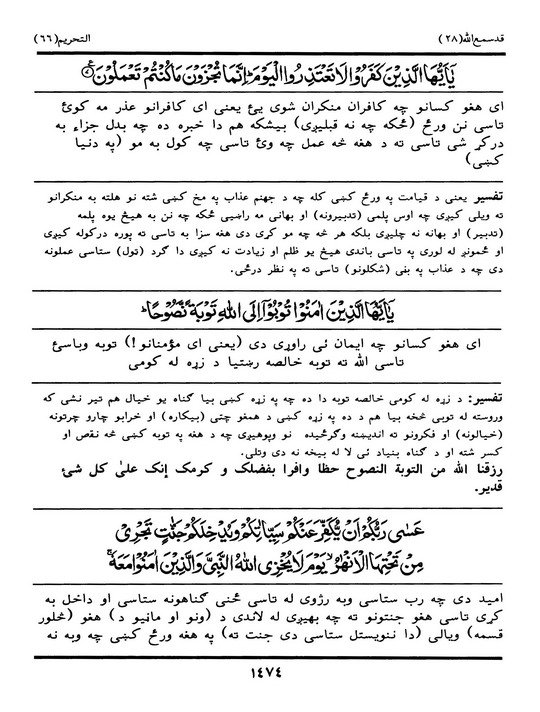 قدسمع الله (٢٨)
التحريم (٦٦)
يَٰٓأَيُّهَا الَّذِينَ كَفَرُوا لَا تَعْتَذِرُوا الْيَوْمَ ۖ إِنَّمَا تُجْزَوْنَ مَا كُنْتُمْ تَعْمَلُونَ
ای هغو کسانو چه کافران منکران شوی یئ یعنی ای کافرانو عذر مه کوئ
تاسی نن ورځ (ځکه چه نه قبلیږی) بیشکه هم دا خبره ده چه بدل جزاء به
درکړ شی تاسی ته د هغه څه عمل چه وئ تاسی چه کول به مو (په دنیا
کښی)
تفسیر یعنی د قیامت په ورځ کښی کله چه د جهنم عذاب په مخ کښی شته نو هلته به منکرانو
ته ویلی کیږی چه اوس پلمی (تدبیرونه) او بهانی مه راښیی ځکه چه نن به هیڅ یوه پلمه
(تدبیر) او بهانه نه چلیږی بلکه هر څه چه مو کړی دی هغه سزا به تاسی ته پوره درکوله کیږی
او ځمونږ له لوری په تاسی باندی هیڅ یو ظلم او زیادت نه کیږی دا ګرد (ټول) ستاسی عملونه
دی چه د عذاب په بڼی (شکلونو) تاسی ته په نظر درځی.
يَٰٓأَيُّهَا الَّذِينَ اٰمَنُوا تُوبُوٓا إِلَى اللهِ تَوْبَةً نَّصُوحًا ۖ
ای هغو کسانو چه ایمان ئی راوړی دی (یعنی ای مؤمنانو!) توبه وباسئ
تاسی الله ته توبه خالصه رښتیا د زړه له کومی
تفسیر: د زړه له کومی خالصه توبه دا ده چه په زړه کښی بیا ګناه یو خیال هم تیر نشی که
وروسته له توبی څخه بیا هم د ده په زړه کښی د همغو چټی (بیکاره) او خرابو چارو چرتونه
(خیالونه) او فکرونو ته اندیښنه وګرځیده نو وپوهیږی چه د هغه په توبه کښی څه نقص او
کسر شته او د ګناه بنیاد ئی لا له بیخه نه دی وتلی.
رزقنا الله من التوبة النصوح حظا وافرا بفضلك و كرمك إنك على كل شئ
قدير.
عَسٰى رَبُّكُمْ أَنْ يُّكَفِّرَ عَنْكُمْ سَيِّاٰتِكُمْ وَيُدْخِلَكُمْ جَنّٰتٍ تَجْرِيْ
مِنْ تَحْتِهَا الْأَنْهٰرُ ۙ يَوْمَ لَا يُخْزِي اللهُ النَّبِيَّ وَالَّذِينَ اٰمَنُوا مَعَهُ ۚ
امید دی چه رب ستاسی وبه رژوی له تاسی ځنی ګناهونه ستاسی او داخل به
کړی تاسی هغو جنتونو ته چه بهیږی له لاندی د (ونو او ماڼیو د) هغو (څلور
قسمه) ویالی (دا ننویستل ستاسی دی جنت ته) په هغه ورځ کښی چه وبه نه
١٤٧٤